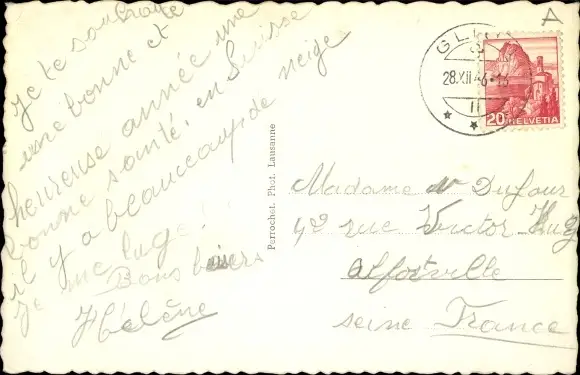 Je te souhaite
une bonne et
heureuse année une
bonne santé. en Suisse
il y a beaucoup de neige
Je me luge
Bons baisers
Hélène
Perrochet. Phot. Lausanne
A
28.XII.46
II
20 HELVETIA
Madame Dufour
42 rue Victor Hug
Alfortville
seine France